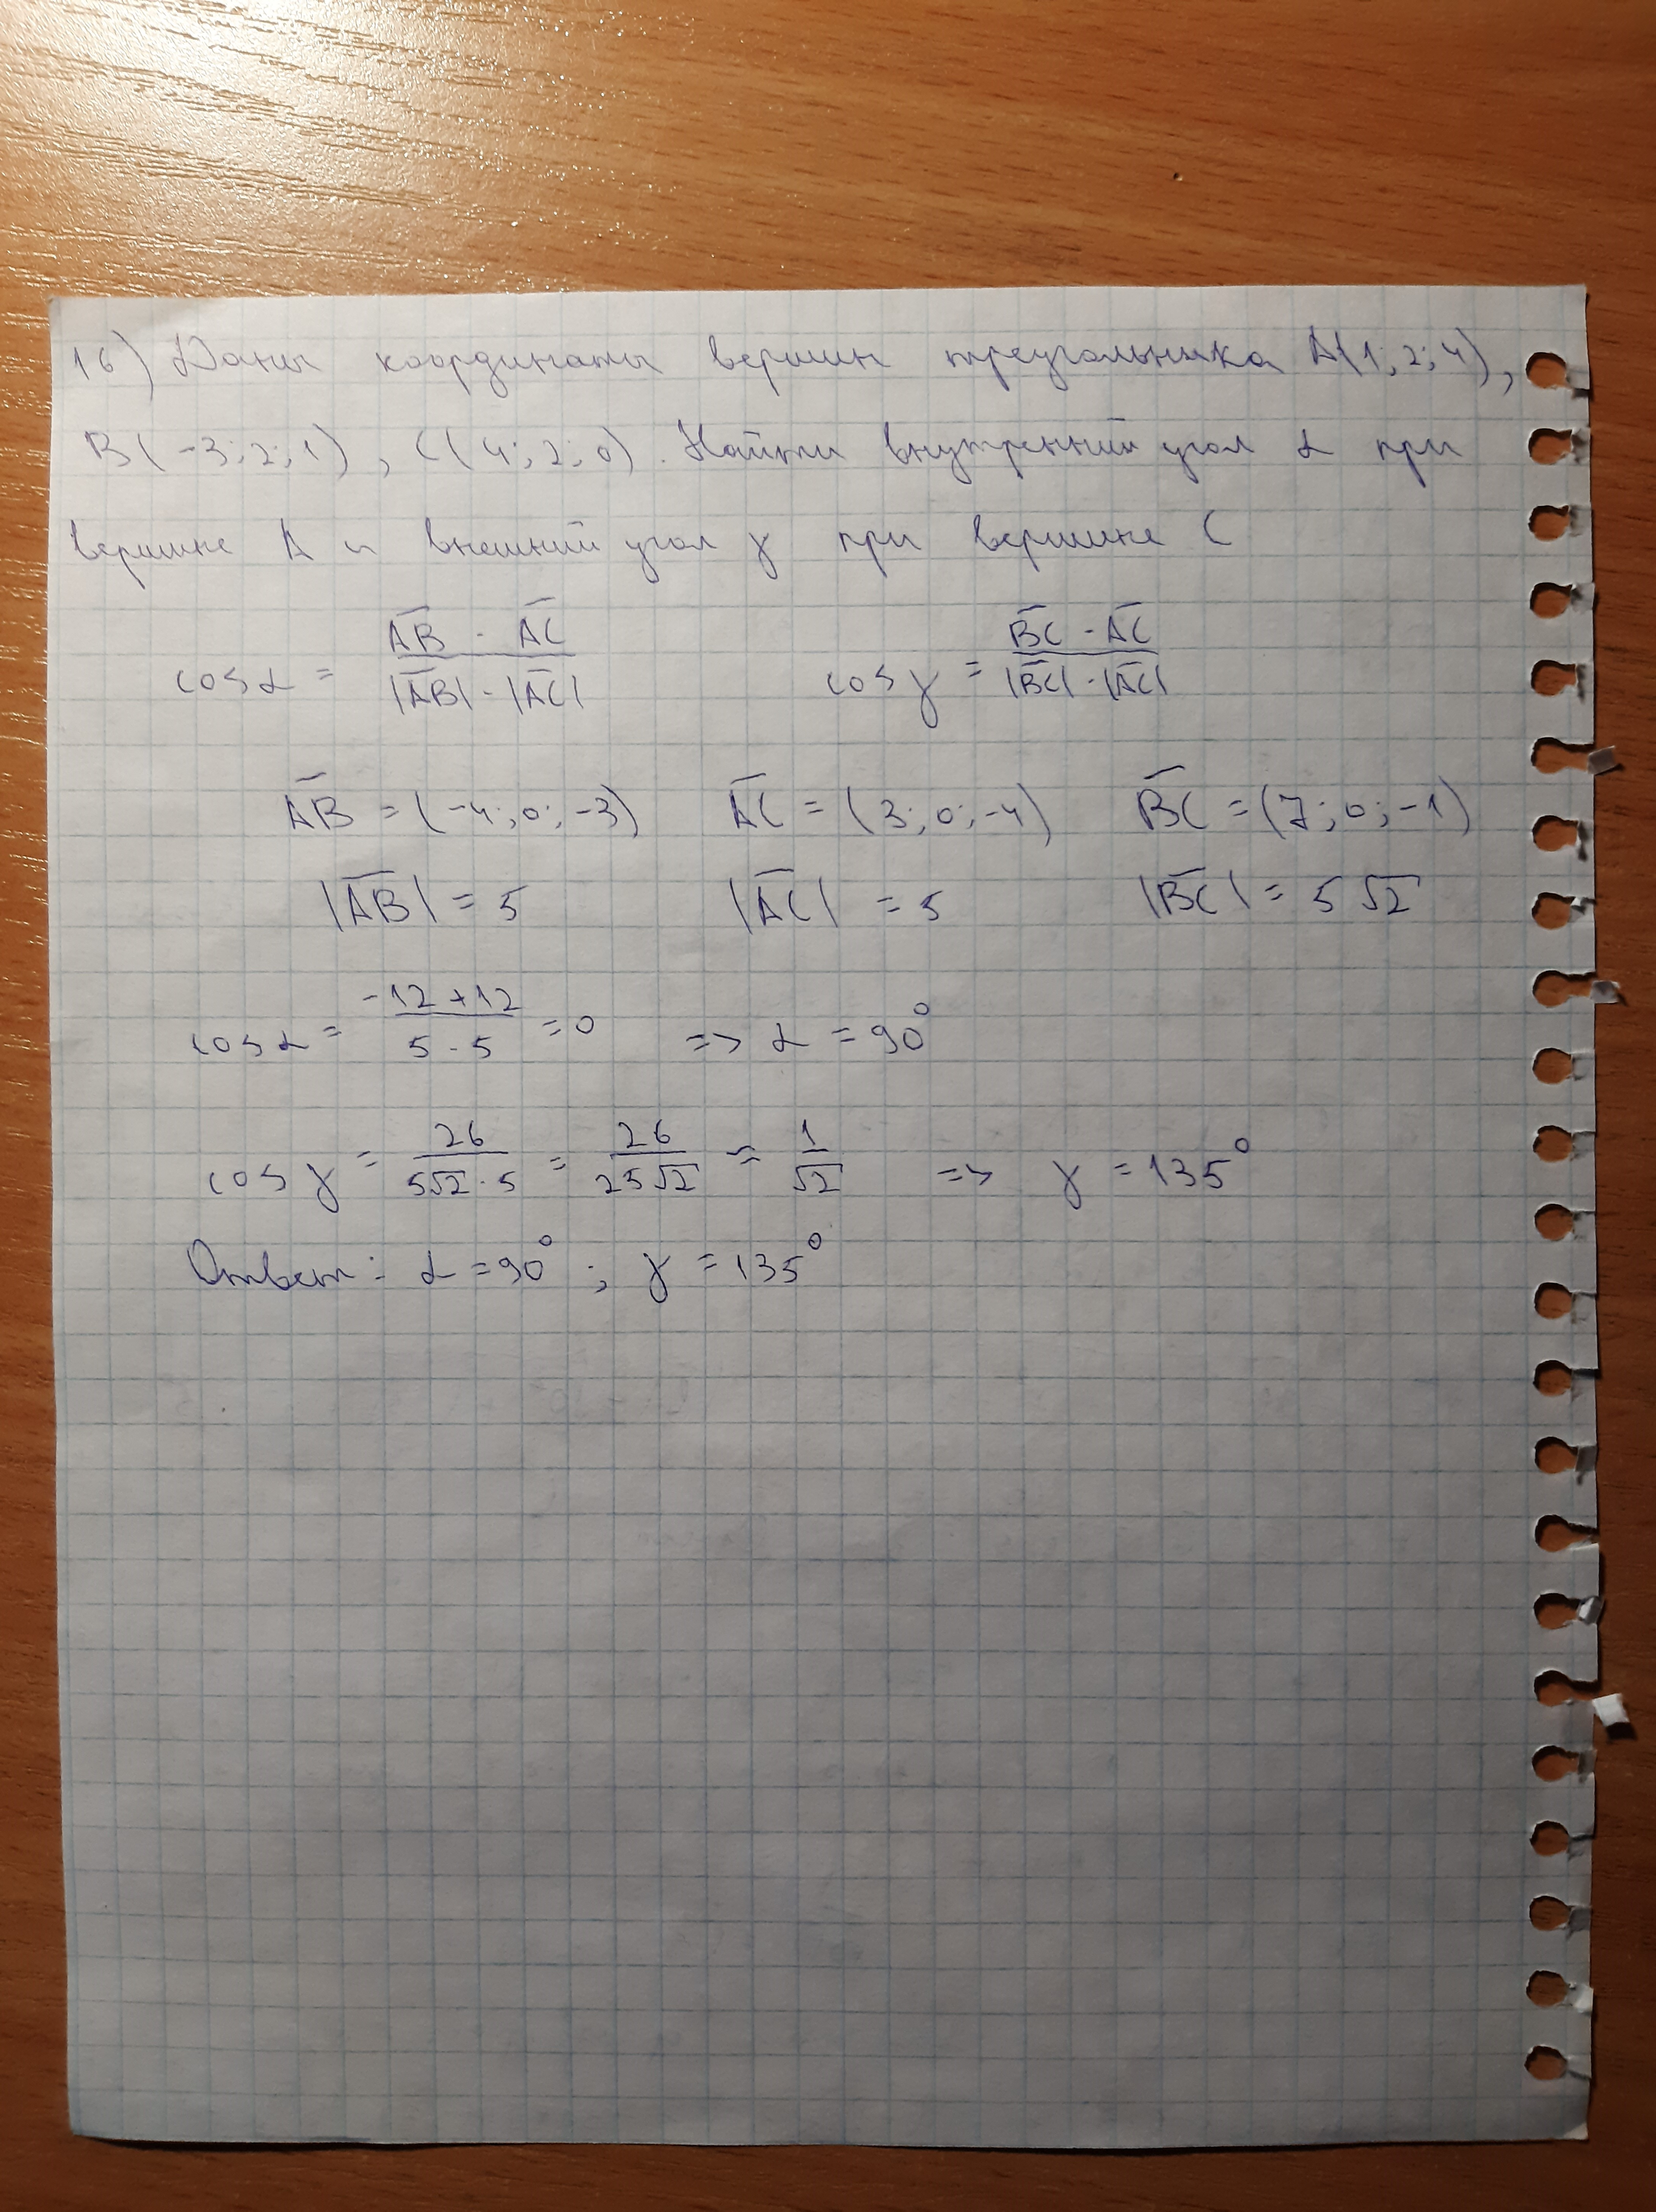 16) Даны координаты вершин треугольника A(1; 2; 4),
B(-3; 2; 1), C(4; 2; 0). Найти внутренний угол α при
вершине A и внешний угол γ при вершине C
cos α = (A̅B̅ · A̅C̅) / (|A̅B̅| · |A̅C̅|) cos γ = (B̅C̅ · A̅C̅) / (|B̅C̅| · |A̅C̅|)
A̅B̅ = (-4; 0; -3) A̅C̅ = (3; 0; -4) B̅C̅ = (7; 0; -1)
|A̅B̅| = 5 |A̅C̅| = 5 |B̅C̅| = 5√2
cos α = (-12 + 12) / (5 · 5) = 0 => α = 90°
cos γ = 26 / (5√2 · 5) = 26 / (25√2) ≈ 1 / √2 => γ = 135°
Ответ: α = 90°; γ = 135°